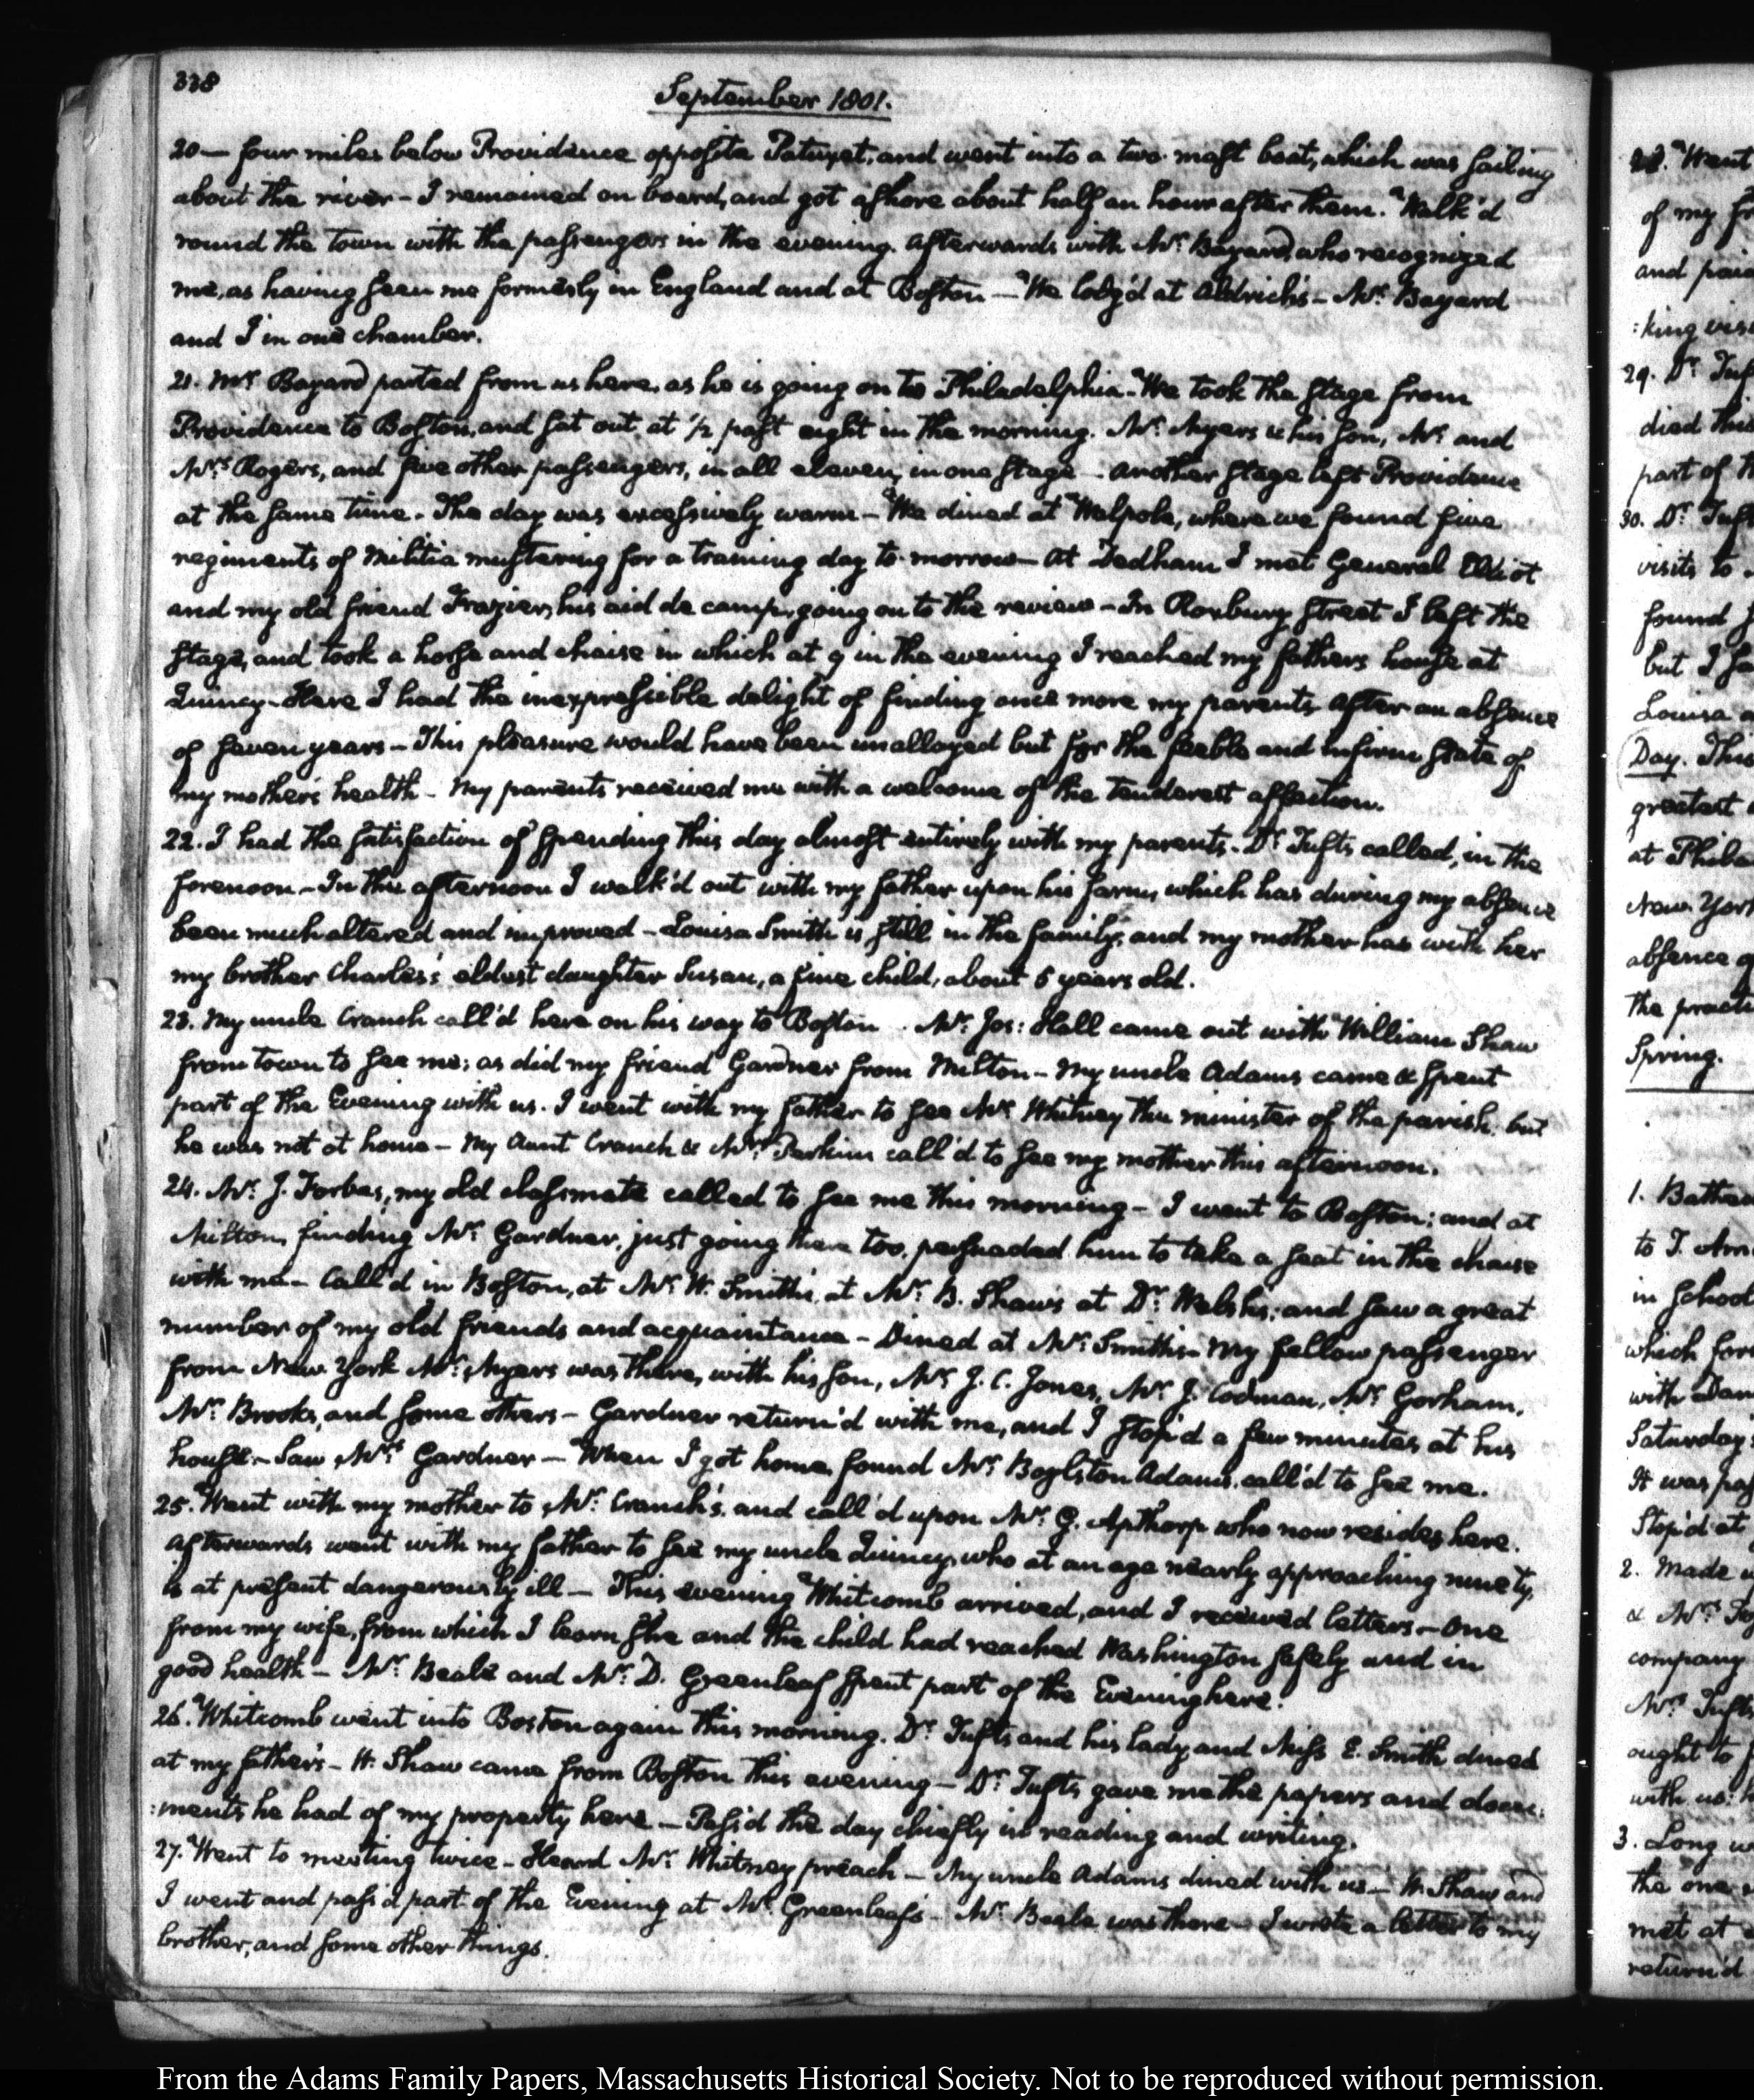 338
September 1801.
20— four miles below Providence opposite Patuxet, and went into a two mast boat, which was sailing
about the river - I remained on board, and got ashore about half an hour after them. Walk'd
round the town with the passengers in the evening. Afterwards with Mr. Bayard, who recognized
me, as having seen me formerly in England and at Boston — We lodg'd at Aldrich's - Mr. Bayard
and I in one chamber.
21. Mr. Bayard parted from us here, as he is going on to Philadelphia - We took the stage from
Providence to Boston, and sat out at ½ past eight in the morning. Mr. Myers & his son, Mr. and
Mrs. Rogers, and five other passengers, in all eleven, in one stage - Another stage left Providence
at the same time - The day was excessively warm - We dined at Walpole, where we found five
regiments of militia mustering for a training day to-morrow - At Dedham I met General Elliot
and my old friend Frazier, his aid de camp, going on to the review - In Roxbury Street I left the
stage, and took a horse and chaise in which at 9 in the evening I reached my fathers house at
Quincy - Here I had the inexpressible delight of finding once more my parents after an absence
of seven years - This pleasure would have been unalloyed but for the feeble and infirm state of
my mother's health - My parents received me with a welcome of the tenderest affection.
22. I had the satisfaction of spending this day almost entirely with my parents - Dr. Tufts called, in the
forenoon - In the afternoon I walk'd out with my father upon his farm, which has during my absence
been much altered and improved - Louisa Smith is still in the family; and my mother has with her
my brother Charles's eldest daughter Susan, a fine child, about 5 years old.
23. My uncle Cranch call'd here on his way to Boston. Mr. Jos: Hall came out with William Shaw
from town to see me; as did my friend Gardner from Milton - My uncle Adams came & spent
part of the Evening with us. I went with my father to see Mr. Whitney the minister of the parish, but
he was not at home - My Aunt Cranch & Mrs. Perkins call'd to see my mother this afternoon.
24. Mr. J. Forbes, my old classmate called to see me this morning - I went to Boston; and at
Milton, finding Mr. Gardner, just going there too, persuaded him to take a seat in the chaise
with me - Call'd in Boston, at Mr. W. Smith's, at Mr. B. Shaw's at Dr. Welsh's; and saw a great
number of my old friends and acquaintance - Dined at Mr. Smith's - My fellow passenger
from New York Mr. Myers was there, with his son, Mr. J. C. Jones, Mr. J. Codman, Mr. Gorham,
Mr. Brooks, and some others - Gardner return'd with me, and I stop'd a few minutes at his
house - Saw Mrs. Gardner — When I got home found Mr. Boylston Adams, call'd to see me.
25. Went with my mother to Mr. Cranch's, and call'd upon Mr. G. Apthorp who now resides here.
Afterwards went with my father to see my uncle Quincy, who at an age nearly approaching ninety,
is at present dangerously ill — This evening Whitcomb arrived, and I received letters - One
from my wife, from which I learn she and the child had reached Washington safely and in
good health - Mr. Beale and Mr. D. Greenleaf spent part of the Evening here.
26. Whitcomb went into Boston again this morning. Dr. Tufts and his lady and Miss E. Smith dined
at my father's - W. Shaw came from Boston this evening - Dr. Tufts gave me the papers and docu:
:ments he had of my property here - Pass'd the day chiefly in reading and writing.
27. Went to meeting twice - Heard Mr. Whitney preach — My uncle Adams dined with us - W. Shaw and
I went and pass'd part of the Evening at Mr. Greenleaf's - Mr. Beale was there - I wrote a letter to my
brother, and some other things.
28. Went
of my
and paid
:king
29. Dr.
died this
part of
30. Dr.
visits to
found
but I
Louisa
Day. This
greatest
at
New York
absence
the
Spring.
1.
to T.
in school
which
with
Saturday
It was
Stop'd at
2. Made
& Mrs.
company
Mrs. Tufts
ought to
with us:
3. Long
the one
met at
return'd
From the Adams Family Papers, Massachusetts Historical Society. Not to be reproduced without permission.